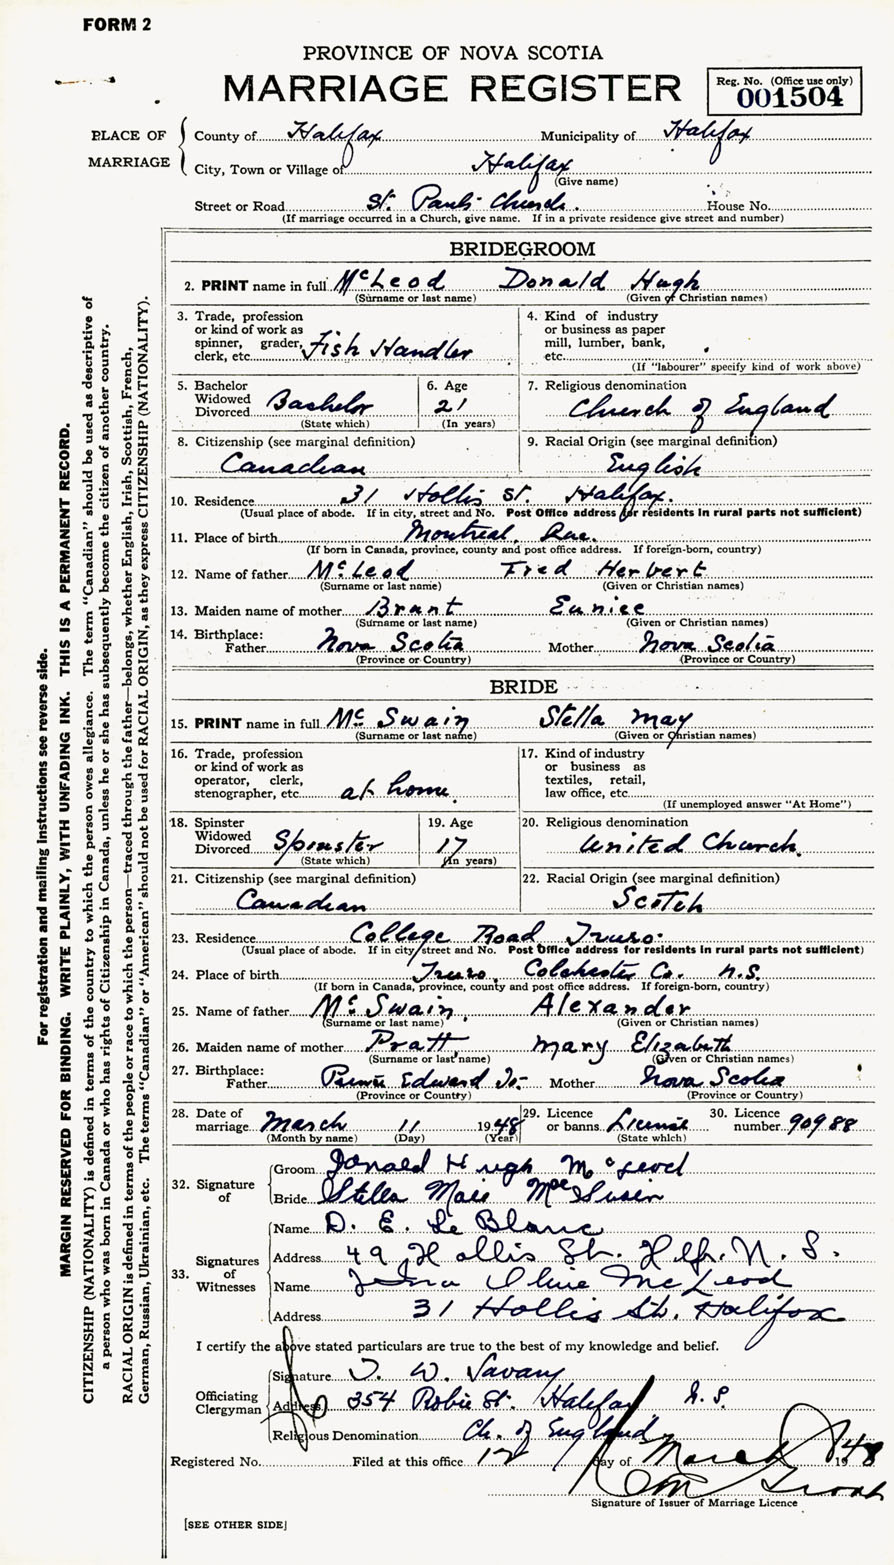 FORM 2
PROVINCE OF NOVA SCOTIA
MARRIAGE REGISTER
Reg. No. (Office use only)
001504
PLACE OF MARRIAGE
County of Halifax Municipality of Halifax
City, Town or Village of Halifax
(Give name)
Street or Road St. Pauls Church. House No.
(If marriage occurred in a Church, give name. If in a private residence give street and number)
BRIDEGROOM
2. PRINT name in full McLeod Donald Hugh
(Surname or last name) (Given or Christian names)
3. Trade, profession
or kind of work as
spinner, grader,
clerk, etc. Fish Handler
4. Kind of industry
or business as paper
mill, lumber, bank,
etc.
(If "labourer" specify kind of work above)
5. Bachelor
Widowed
Divorced Bachelor
(State which)
6. Age
21
(In years)
7. Religious denomination
Church of England
8. Citizenship (see marginal definition)
Canadian
9. Racial Origin (see marginal definition)
English
10. Residence 31 Hollis St. Halifax.
(Usual place of abode. If in city, street and No. Post Office address for residents in rural parts not sufficient)
11. Place of birth Montreal, Que.
(If born in Canada, province, county and post office address. If foreign-born, country)
12. Name of father McLeod Fred Herbert
(Surname or last name) (Given or Christian names)
13. Maiden name of mother Brant Eunice
(Surname or last name) (Given or Christian names)
14. Birthplace:
Father Nova Scotia Mother Nova Scotia
(Province or Country) (Province or Country)
BRIDE
15. PRINT name in full McSwain Stella May
(Surname or last name) (Given or Christian names)
16. Trade, profession
or kind of work as
operator, clerk,
stenographer, etc. at home.
17. Kind of industry
or business as
textiles, retail,
law office, etc.
(If unemployed answer "At Home")
18. Spinster
Widowed
Divorced Spinster
(State which)
19. Age
17
(In years)
20. Religious denomination
United Church.
21. Citizenship (see marginal definition)
Canadian
22. Racial Origin (see marginal definition)
Scotch
23. Residence College Road Truro.
(Usual place of abode. If in city, street and No. Post Office address for residents in rural parts not sufficient)
24. Place of birth Truro, Colchester Co. N.S.
(If born in Canada, province, county and post office address. If foreign-born, country)
25. Name of father McSwain, Alexander
(Surname or last name) (Given or Christian names)
26. Maiden name of mother Pratt, Mary Elizabeth
(Surname or last name) (Given or Christian names)
27. Birthplace:
Father Prince Edward Is. Mother Nova Scotia
(Province or Country) (Province or Country)
28. Date of
marriage March 11 1948
(Month by name) (Day) (Year)
29. Licence
or banns License
(State which)
30. Licence
number 90988
32. Signature of
Groom Donald Hugh McLeod
Bride Stella Mae
33. Signatures of Witnesses
Name D. E. LeBlanc
Address 49 Hollis St. Hlfx. N. S.
Name Olive McLeod
Address 31 Hollis St. Halifax
I certify the above stated particulars are true to the best of my knowledge and belief.
Officiating Clergyman
Signature T. W. Savary
Address 354 Robie St. Halifax N. S.
Religious Denomination Ch. of England
Registered No. Filed at this office 12 day of March 1948
Signature of Issuer of Marriage Licence
[SEE OTHER SIDE]
For registration and mailing instructions see reverse side.
MARGIN RESERVED FOR BINDING. WRITE PLAINLY, WITH UNFADING INK. THIS IS A PERMANENT RECORD.
CITIZENSHIP (NATIONALITY) is defined in terms of the country to which the person owes allegiance. The term "Canadian" should be used as descriptive of
a person who was born in Canada or who has rights of Citizenship in Canada, unless he or she has subsequently become the citizen of another country.
RACIAL ORIGIN is defined in terms of the people or race to which the person—traced through the father—belongs, whether English, Irish, Scottish, French,
German, Russian, Ukrainian, etc. The terms "Canadian" or "American" should not be used for RACIAL ORIGIN, as they express CITIZENSHIP (NATIONALITY).